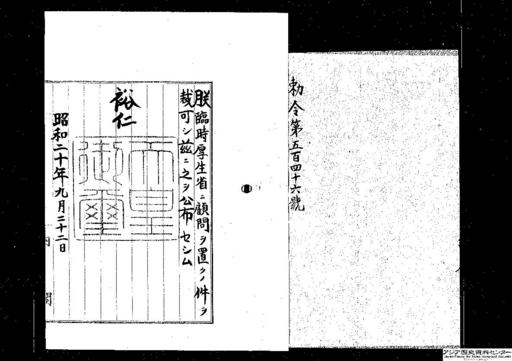 勅令第五百四十六號
朕臨時厚生省ニ顧問ヲ置クノ件ヲ
裁可シ茲ニ之ヲ公布セシム
裕仁
天皇御璽
昭和二十年九月二十二日
内閣
アジア歴史資料センター